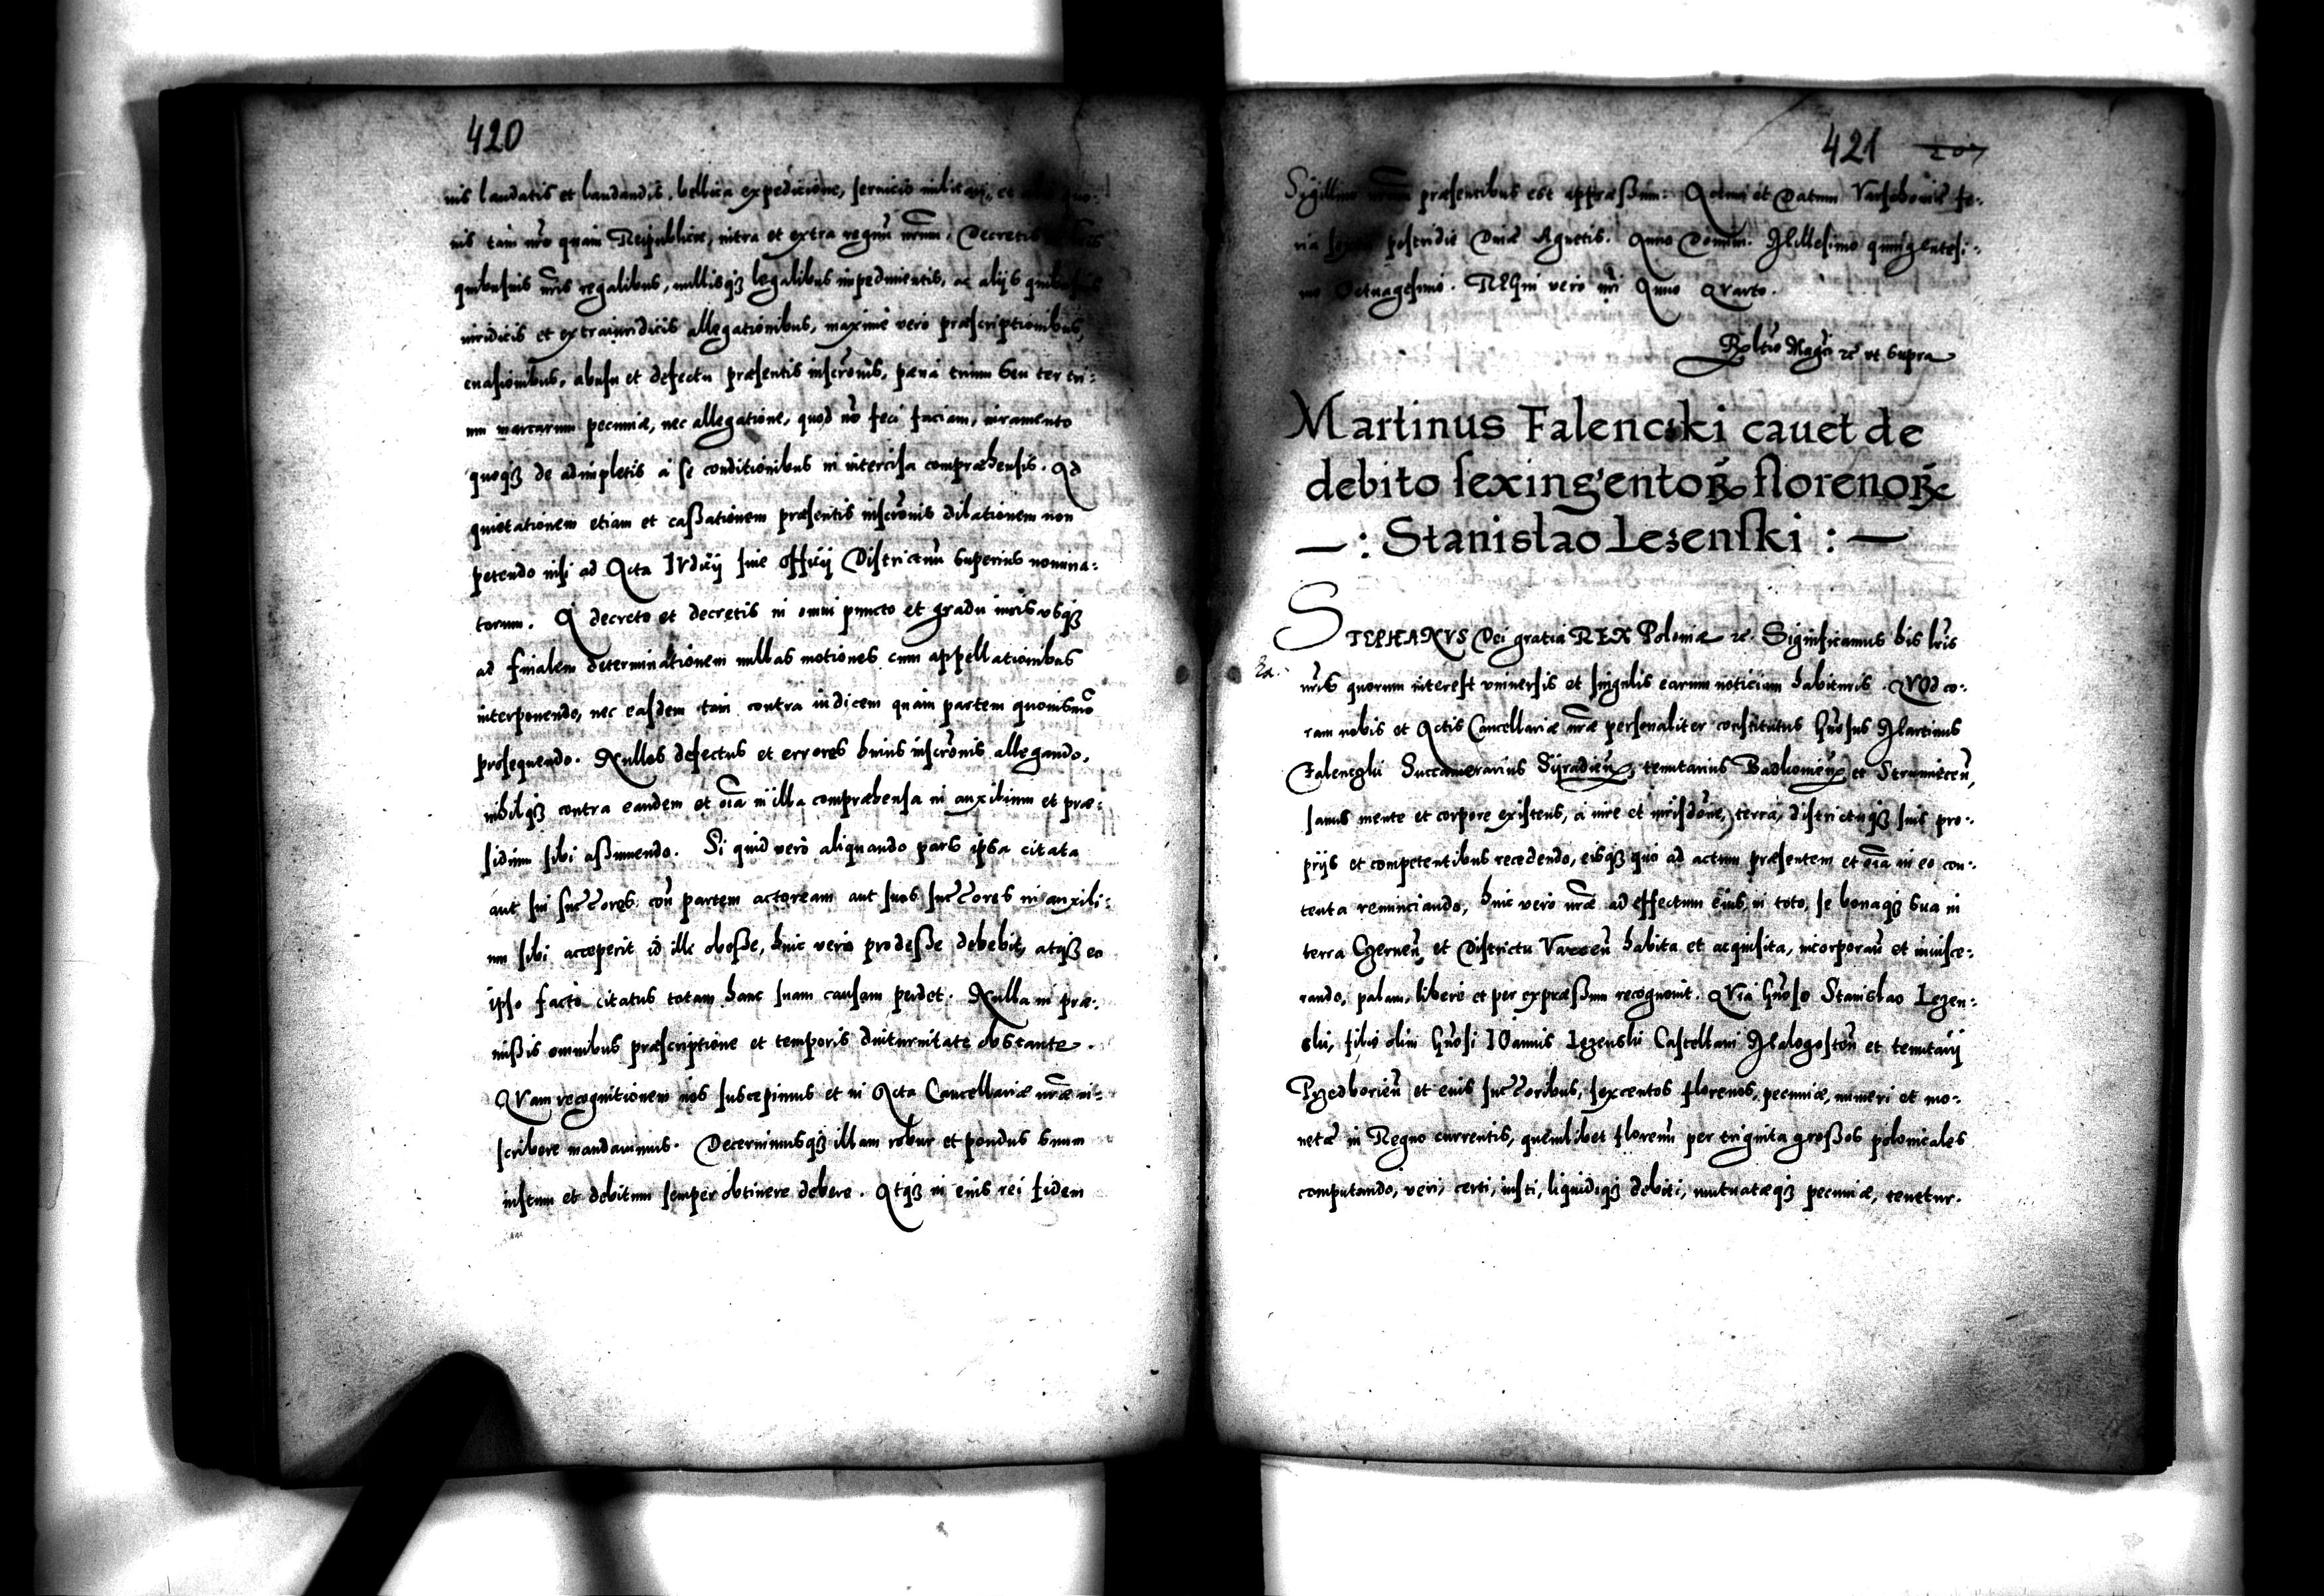 420
nis laudatis et laudandis, bellica expeditione, seruicio militari, et
nis tam nro quam Reipublicæ, intra et extra regnũ nrum, Decretis
quibusuis nris regalibus, nullisqȝ legalibus impedimentis, ac alijs
iuridicis et extraiuridicis allegationibus, maxime vero præscriptionibus,
euasionibus, abusu et defectu præsentis inscrõnis, pæna trium seu ter tri:
um marcarum pecuniæ, nec allegatione, quod nõ feci faciam, iuramento
quoqȝ de adimpletis a se conditionibus in intercisa compræhensis. Ad
quietationem etiam et caßationem præsentis inscrõnis dilationem non
petendo nisi ad Acta IVdicij siue officij Districtuũ superius nomina:
torum. A decreto et decretis in omni puncto et gradu iuris vsqȝ
ad finalem determinationem nullas motiones cum appellationibus
interponendo, nec easdem tam contra iudicem quam partem quouismõ
prosequendo. Nullos defectus et errores huius inscrõnis allegando,
nihilqȝ contra eandem et oĩa in illa compræhensa in auxilium et præ:
sidium sibi aßumendo. Si quid vero aliquando pars ipsa citata
aut sui succores, coñ partem actoream aut suos succores in auxili:
um sibi acceperit id illi obeße, huic vero prodeße debebit, atqȝ eo
ipso facto citatus totam hanc suam causam perdet. Nulla in præ:
mißis omnibus præscriptione et temporis diuturnitate obstante.
QVam recognitionem nos suscepimus et in Acta Cancellariæ nræ in:
scribere mandauimus. Decernimusqȝ illam robur et pondus suum
iustum et debitum semper obtinere debere. Atqȝ in eius rei fidem
421 207
Sigillum nrum præsentibus est appræßum. Actum et Datum Varschouiæ fe:
ria sexta postridie Diuæ Agnetis. Anno Domini. Millesimo quingentesi:
mo Octuagesimo. REgni vero nri Anno QVarto.
Reltio Magci ꝛc vt supra
Martinus Falencski cauet de
debito sexingentoꝝ florenoꝝ
— : Stanislao Lezenski : —
STEPHANVS Dei gratia REX Poloniæ ꝛc. Significamus his lris
nris quorum interest vniuersis et singulis earum noticiam habituris. QVOd co:
ram nobis et Actis Cancellariæ nræ personaliter constitutus Gnosus Martinus
Falenczki Succamerarius Syradieñ, tenutarius et
sanus mente et corpore existens, a iure et iurisdõne, terra, districtuqȝ suis pro:
prijs et competentibus recedendo, eisqȝ quo ad actum præsentem et oĩa in eo con:
tenta renunciando, huic vero nræ ad effectum eius, in toto, se bonaqȝ sua in
terra Czerneñ et Districtu Vareceñ habita et acquisita, incorporañ et inuisce:
rando, palam, libere et per expræßum recognouit. QVia Gnoso Stanislao Lezen:
ski, filio olim Gnosi IOannis Lezenski Castellani Malogosteñ et tenutarij
Przedborieñ et eius succoribus, sexcentos florenos, pecuniæ, numeri et mo:
netæ in Regno currentis, quemlibet florenũ per triginta großos polonicales
computando, veri, certi, iusti, liquidiqȝ debiti, mutuatæqȝ pecuniæ, tenetur.